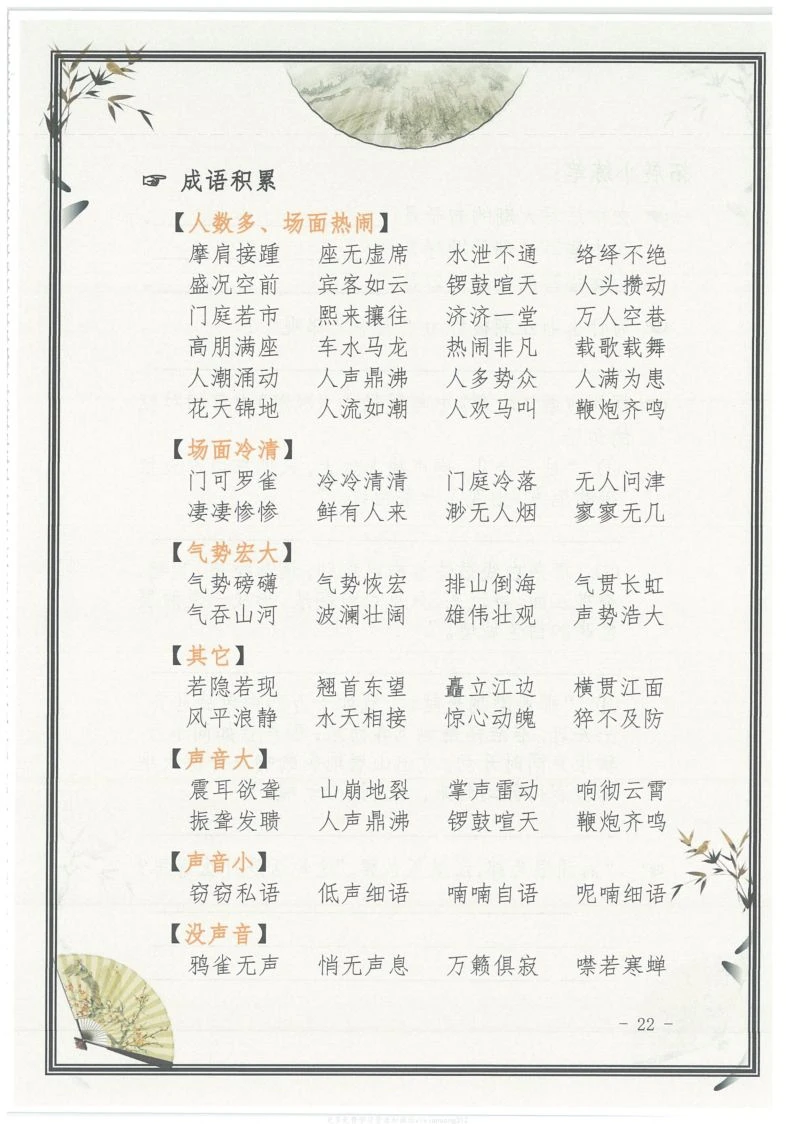 ☞ 成语积累
【人数多、场面热闹】
摩肩接踵 座无虚席 水泄不通 络绎不绝
盛况空前 宾客如云 锣鼓喧天 人头攒动
门庭若市 熙来攘往 济济一堂 万人空巷
高朋满座 车水马龙 热闹非凡 载歌载舞
人潮涌动 人声鼎沸 人多势众 人满为患
花天锦地 人流如潮 人欢马叫 鞭炮齐鸣
【场面冷清】
门可罗雀 冷冷清清 门庭冷落 无人问津
凄凄惨惨 鲜有人来 渺无人烟 寥寥无几
【气势宏大】
气势磅礴 气势恢宏 排山倒海 气贯长虹
气吞山河 波澜壮阔 雄伟壮观 声势浩大
【其它】
若隐若现 翘首东望 矗立江边 横贯江面
风平浪静 水天相接 惊心动魄 猝不及防
【声音大】
震耳欲聋 山崩地裂 掌声雷动 响彻云霄
振聋发聩 人声鼎沸 锣鼓喧天 鞭炮齐鸣
【声音小】
窃窃私语 低声细语 喃喃自语 呢喃细语
【没声音】
鸦雀无声 悄无声息 万籁俱寂 噤若寒蝉
- 22 -